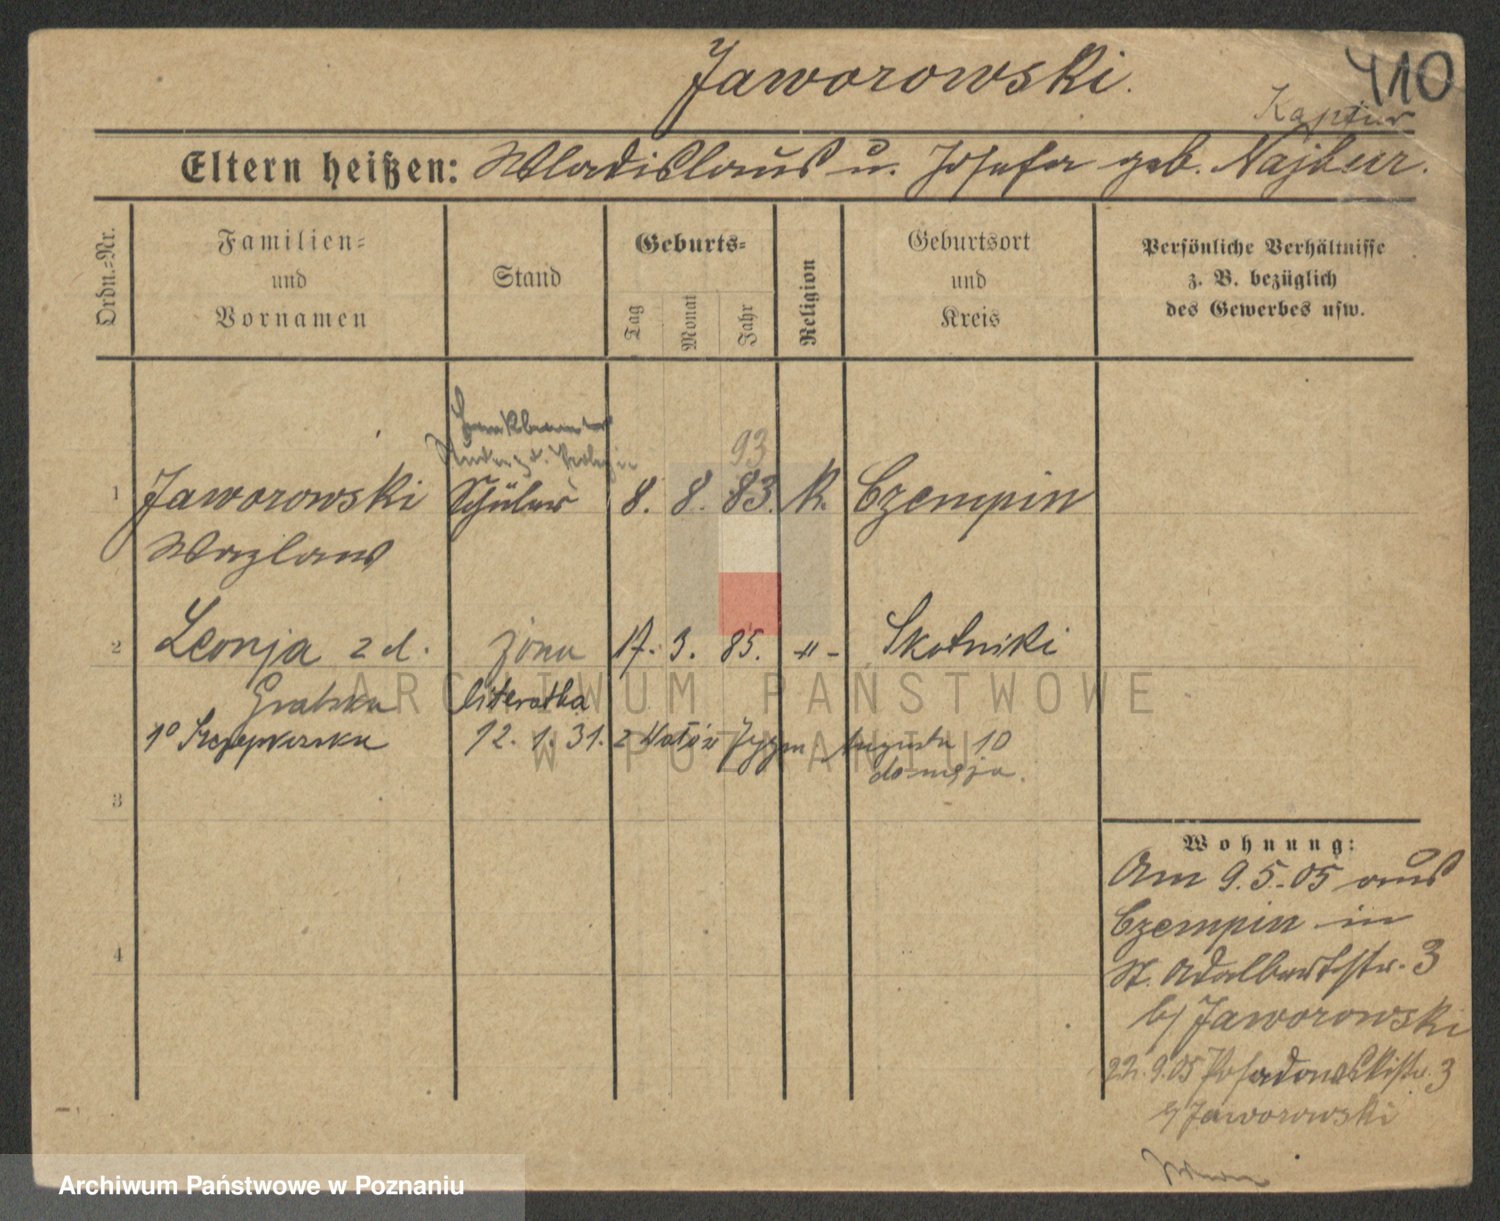 Jaworowski.
410
Kaptur
Eltern heißen: Wladislaus u. Josefa geb. Najkur.
Ordn.=Nr.
Familien=
und
Vornamen
Stand
Geburts=
Tag
Monat
Jahr
Religion
Geburtsort
und
Kreis
Persönliche Verhältnisse
z. B. bezüglich
des Gewerbes usw.
Bankbeamter
93
1 Jaworowski Schüler 8. 8. 83. K. Czempin
Wazlaus
2 Leonja z d. żona 17. 3. 85. -"- Skotniki
Grabska literatka
1º 12. 1. 31. z Zygm Augusta 10
3
4
Wohnung:
Am 9.5.05 aus
Czempin in
St. Adalbertstr. 3
b/ Jaworowski
22.9.05 Posadowskistr. 3
b/ Jaworowski
ARCHIWUM PAŃSTWOWE
W POZNANIU
Archiwum Państwowe w Poznaniu